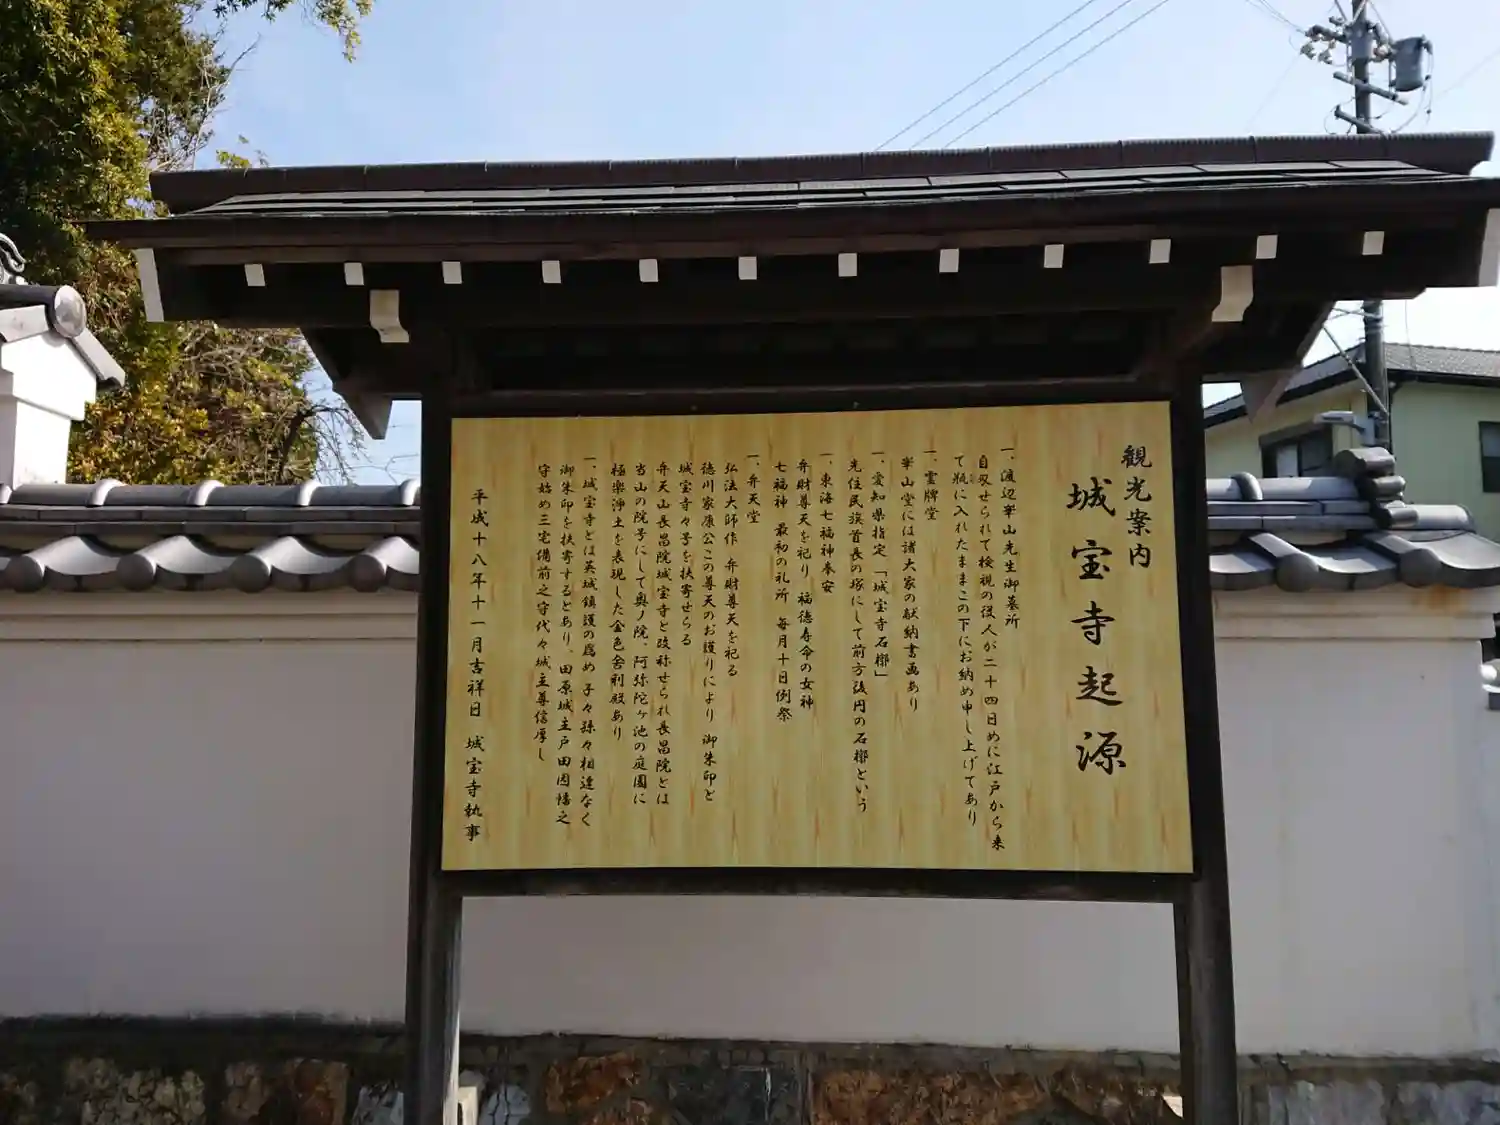 観光案内
城宝寺起源
一、渡辺崋山先生御墓所
自叉せられて検視の役人が二十四日めに江戸から来
て瓶に入れたままこの下にお納め申し上げてあり
一、霊牌堂
崋山堂には諸大家の献納書画あり
一、愛知県指定「城宝寺石槨」
先住民族首長の塚にして前方後円の石槨という
一、東海七福神奉安
弁財尊天を祀り 福徳寿命の女神
七福神 最初の礼所 毎月十日例祭
一、弁天堂
弘法大師作 弁財尊天を祀る
徳川家康公この尊天のお護りにより 御朱印と
城宝寺々号を扶寄せらる
弁天山長昌院城宝寺と改称せられ長昌院とは
当山の院号にして奥ノ院、阿弥陀ヶ池の庭園に
極楽浄土を表現した金色舎利殿あり
一、城宝寺とは英城鎮護の為め 子々孫々相違なく
御朱印を扶寄するとあり、田原城主戸田因幡之
守始め三宅備前之守代々城主尊信厚し
平成十八年十一月吉祥日 城宝寺執事